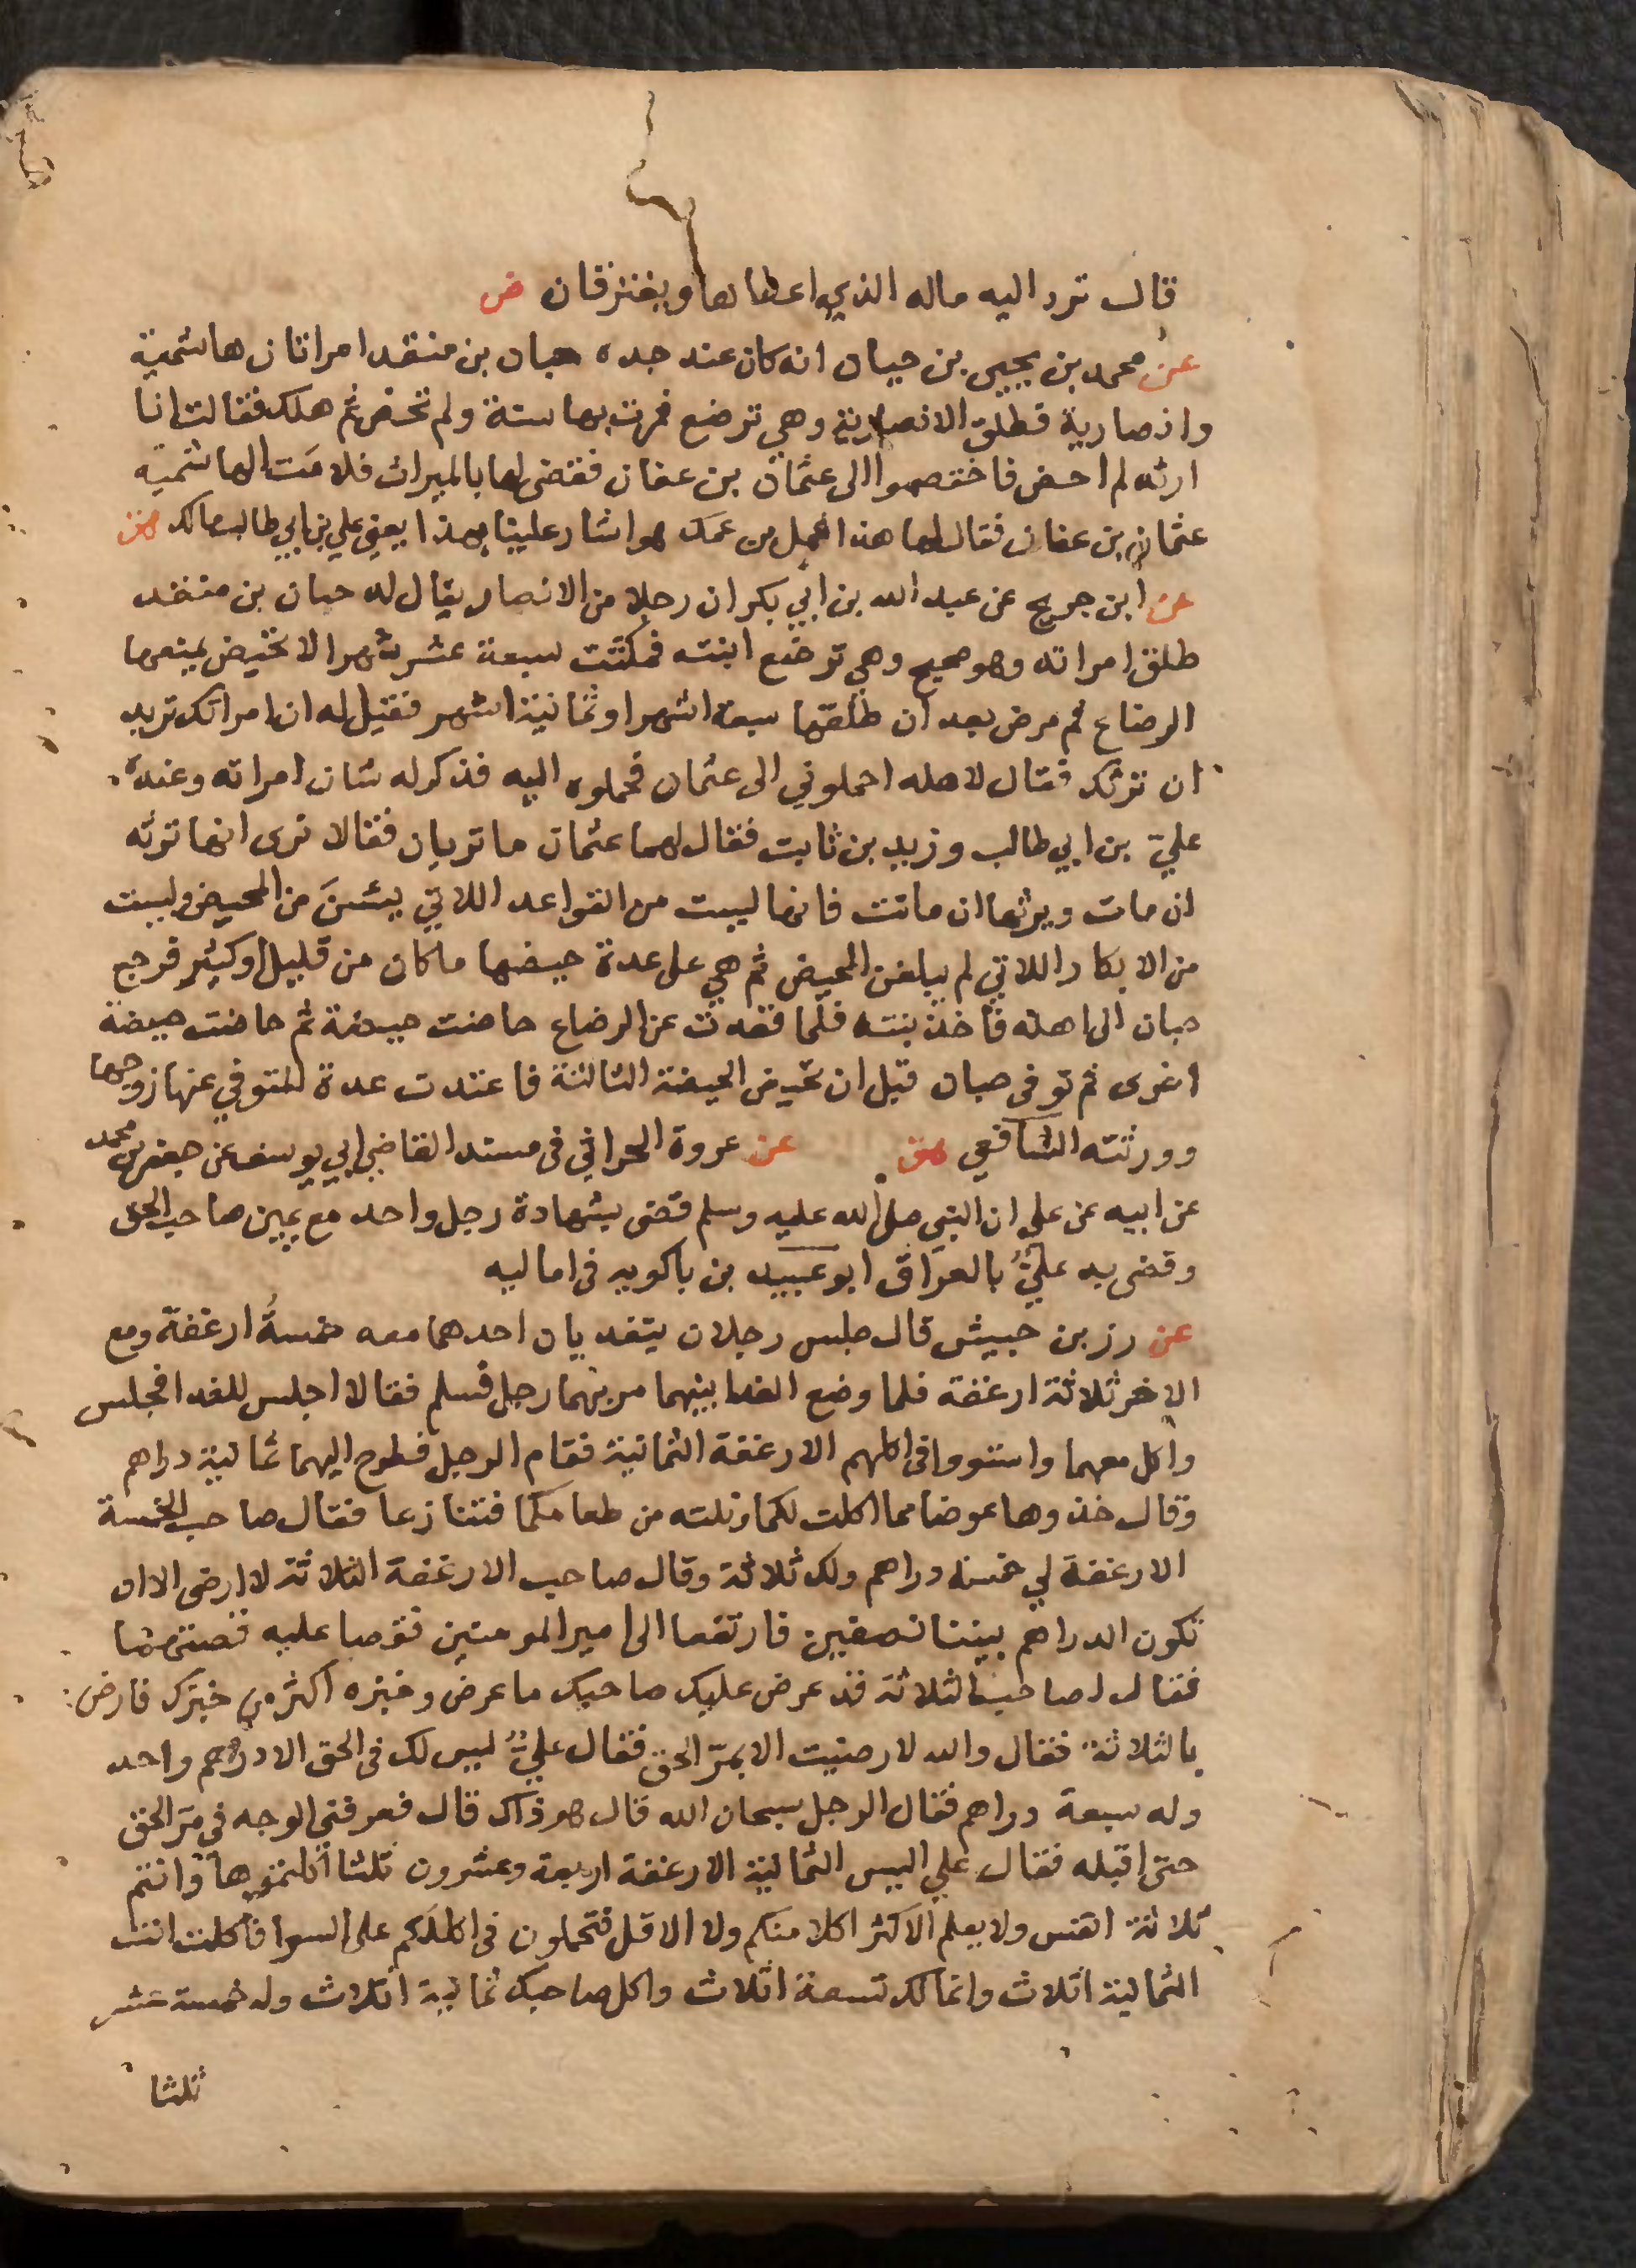 قال ترد اليه ماله الذي اعطاها ويفترقان ض
عن محمد بن يحيى بن حبان انه كان عند جده حبان بن منقد امراتان هاشمية
وانصارية فطلق الانصارية وهي ترضع فمرت بها سنة ولم تحض ثم هلك فقالت انا
ارثه لم احض فاختصموا الى عثمان بن عفان فقضى لها بالميراث فلامت الهاشمية
عثمان بن عفان فقال لها هذا عمل بن عمك هو اشار علينا بهذا يعني علي بن ابي طالب مالك هق
عن ابن جريج عن عبد الله بن ابي بكر ان رجلا من الانصار يقال له حبان بن منقد
طلق امراته وهو صحيح وهي ترضع ابنته فمكثت سبعة عشر شهرا لا تحيض يمنعها
الرضاع ثم مرض بعد ان طلقها سبعة اشهر او ثمانية اشهر فقيل له ان امراتك تريد
ان ترثك فقال لاهله احملوني الى عثمان فحملوه اليه فذكر له شان امراته وعنده
علي بن ابي طالب وزيد بن ثابت فقال لهما عثمان ما تريان فقالا نرى انها ترثه
ان مات ويرثها ان ماتت فانها ليست من القواعد اللاتي يئسن من المحيض وليست
من الابكار اللاتي لم يبلغن المحيض ثم هي على عدة حيضها ما كان من قليل او كثير فرجع
حبان الى اهله فاخذ بنته فلما فقدت عن الرضاع حاضت حيضة ثم حاضت حيضة
اخرى ثم توفى حبان قبل ان تحيض الحيضة الثالثة فاعتدت عدة المتوفي عنها زوجها
وورثته الشافعي هق عن عروة الحراني في مسند القاضي ابي يوسف عن جعفر بن محمد
عن ابيه عن علي ان النبي صلى الله عليه وسلم قضى بشهادة رجل واحد مع يمين صاحب الحق
وقضى به علي بالعراق ابو عبيد بن باكويه في اماليه
عن رز بن حبيش قال جلس رجلان يتغديان احدهما معه خمسة ارغفة ومع
الاخر ثلاثة ارغفة فلما وضع الغدا بينهما مر بهما رجل فسلم فقالا اجلس للغدا فجلس
واكل معهما واستووا في اكلهم الارغفة الثمانية فقام الرجل فطرح اليهما ثمانية دراهم
وقال خذوها عوضا مما اكلت لكما ونلته من طعامكما فتنازعا فقال صاحب الخمسة
الارغفة لي خمسة دراهم ولك ثلاثة وقال صاحب الارغفة الثلاثة لا ارضى الا ان
تكون الدراهم بيننا نصفين فارتفعا الى امير المومنين فقصا عليه قصتهما
فقال لصاحب الثلاثة قد عرض عليك صاحبك ما عرض وخبزه اكثر من خبزك فارض
بالثلاثة فقال والله لا رضيت الا بمر الحق فقال علي ليس لك في الحق الا درهم واحد
وله سبعة دراهم فقال الرجل سبحان الله قال هو ذاك قال فعرفني الوجه في مر الحق
حتى اقبله فقال علي اليس الثمانية الارغفة اربعة وعشرون ثلثا اكلتموها وانتم
ثلاثة انفس ولا يعلم الاكثر اكلا منكم ولا الاقل فتحملون في اكلكم على السوا فاكلت انت
الثمانية اثلاث وانما لك تسعة اثلاث واكل صاحبك ثمانية اثلاث وله خمسة عشر
ثلثا